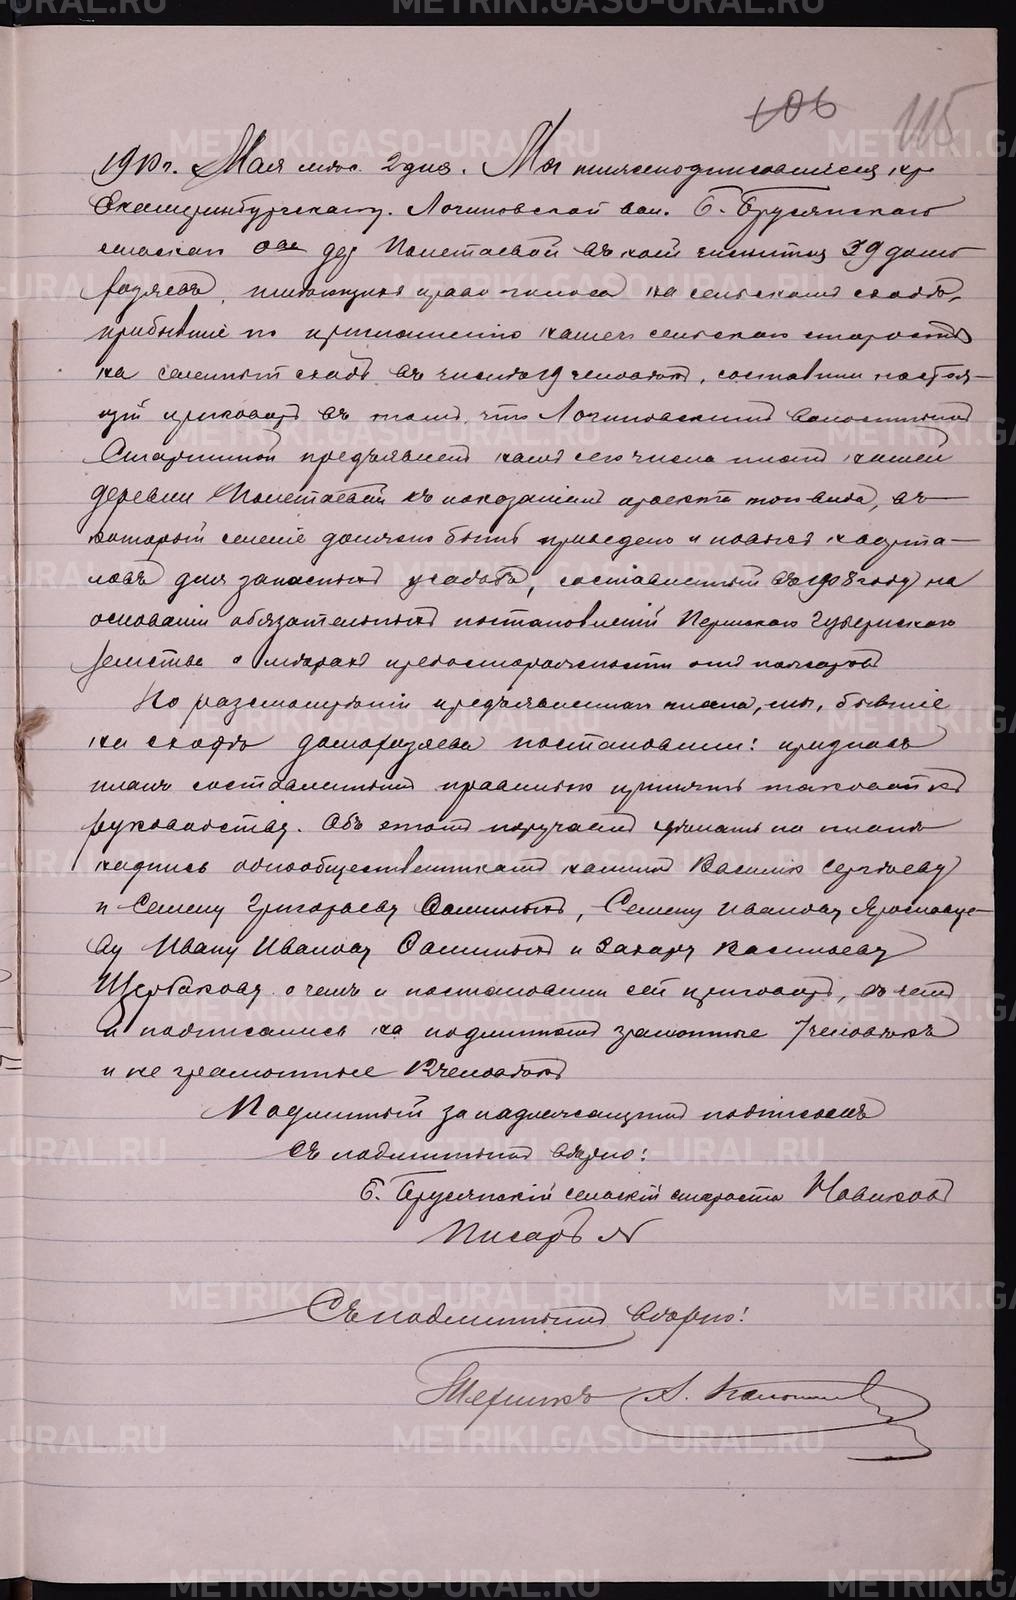 106 115
1910 г. Мая мѣс. 2 дня. Мы нижеподписавшіеся кр.
Екатеринбургскаго у. Логиновской вол. Б. Брусянскаго
сельскаго об-ва дер Полетаевой въ коей числится 39 домо
хозяевъ, имѣющихъ право голоса на сельскомъ сходѣ,
прибывшіе по приглашенію нашего сельскаго старосты
на селенный сходъ въ числѣ 19 человѣкъ, составили настоя-
щій приговоръ въ томъ, что Логиновскимъ волостнымъ
Старшиной предъявленъ намъ сего числа планъ нашей
деревни Полетаевой съ показаніемъ проекта того вида, въ
который селеніе должно быть приведено и новыхъ кварта-
ловъ для запасныхъ усадьбъ, составленный въ 1908 году на
основаніи обязательныхъ постановленій Пермскаго Губернскаго
Земства о мѣрахъ предосторожности отъ пожаровъ
По разсмотрѣніи предъявленнаго плана, мы, бывшіе
на сходѣ домохозяева постановили: признавъ
планъ составленнымъ правильно принять таковой къ
руководству. Объ этомъ поручаемъ сдѣлать на планѣ
надпись однообщественникамъ нашимъ Василію Сергѣеву
и Семену Григорьеву Ѳоминымъ, Семену Иванову Ярославце-
ву Ивану Иванову Ѳоминыхъ и Захару Васильеву
Щербакову о чемъ и постановили сей приговоръ, въ чемъ
и подписались на подлинномъ грамотные 7 человѣкъ
и не грамотные 12 человѣкъ
Подлинный за надлежащимъ подписомъ
Съ подлиннымъ вѣрно:
Б. Брусянскій сельскій староста Новиковъ
Писарь
Съ подлиннымъ вѣрно!
METRIKI.GASO-URAL.RU